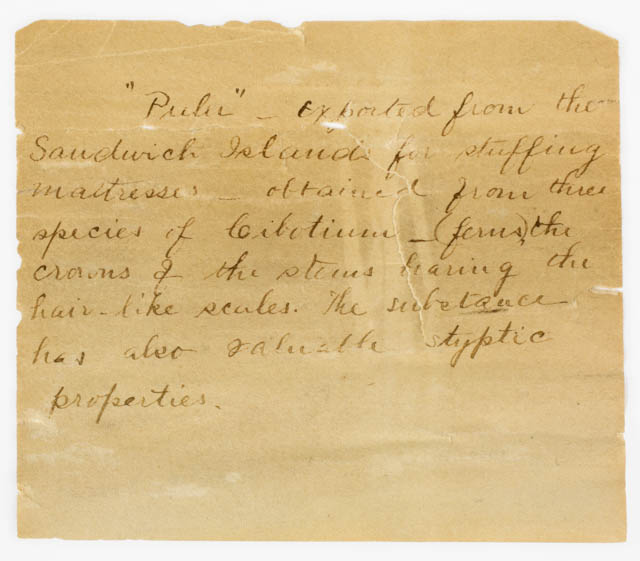 "Pulu" - exported from the
Sandwich Islands for stuffing
mattresses - obtained from three
species of Cibotium - (ferns), the
crowns of the stems having the
hair-like scales. The substance
has also valuable styptic
properties.